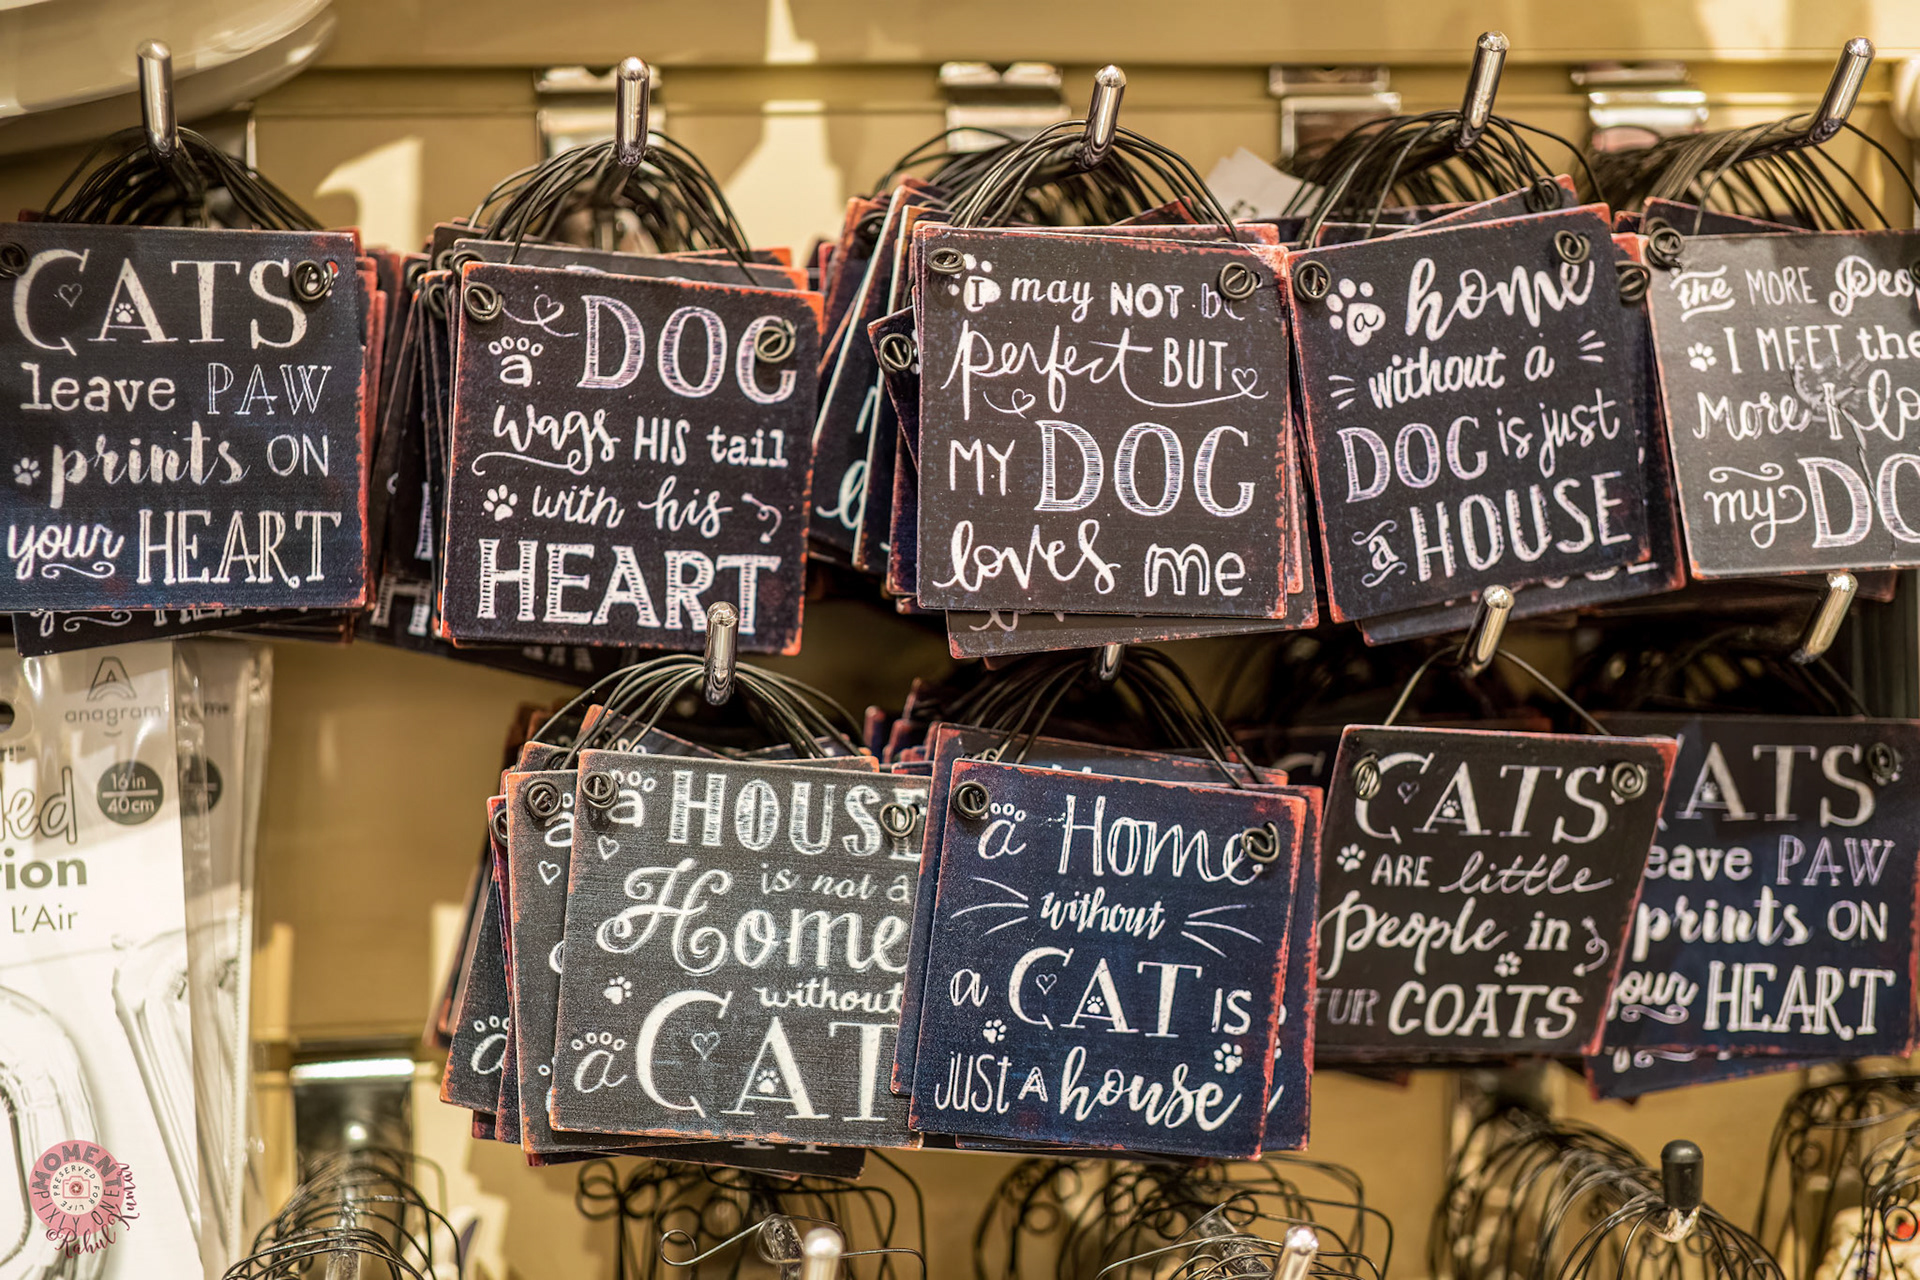 CATS
leave PAW
prints ON
your HEART
a DOG
wags HIS tail
with his
HEART
I may NOT be
perfect BUT
MY DOG
loves me
a home
without a
DOG is just
a HOUSE
the MORE
I MEET the
More I
my
anagram
16 in
40 cm
L'Air
a HOUSE
is not a
Home
without
a CAT
a Home
without
a CAT IS
JUST A house
CATS
ARE little
people in
FUR COATS
CATS
leave PAW
prints ON
your HEART
MOMENT
PRESERVED FOR LIFE
©Rahul Kumar